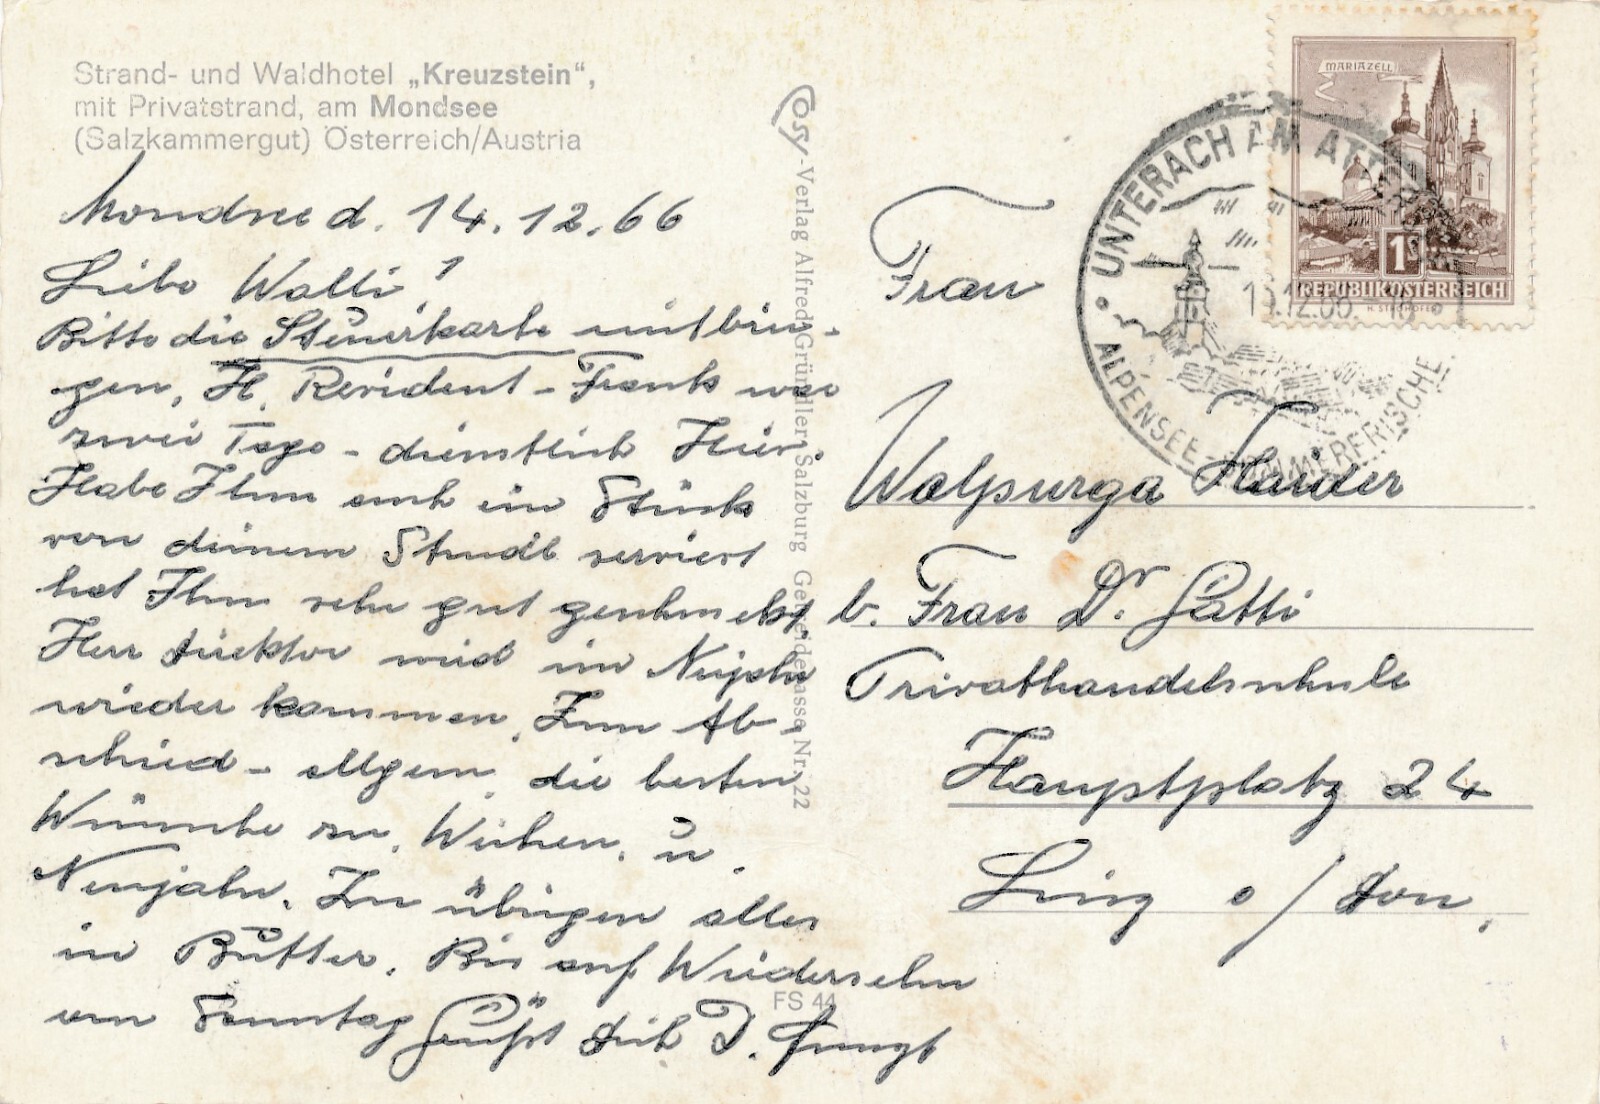 Strand- und Waldhotel „Kreuzstein“,
mit Privatstrand, am Mondsee
(Salzkammergut) Österreich/Austria
Mondsee d. 14.12.66
Liebe Walli!
Bitte die Steuerkarte mitbrin-
gen, H. Revident - Frank war
zwei Tage - dienstlich Hier.
Habe Ihm auch ein Stück
von deinem Strudl serviert
hat Ihm sehr gut geschmekt.
Herr Direktor wird im Neujahr
wieder kommen. Zum Ab-
schied - allgem. die besten
Wünsche zu. Weihen. u.
Neujahr. Im übrigen alles
in Butter. Bis auf Wiedersehn
am Sonntag Grüßt dich D.
Cosy-Verlag Alfred Gründler Salzburg Getreidegasse Nr. 22
FS 44
MARIAZELL
1S
REPUBLIK ÖSTERREICH
UNTERACH AM ATTERSEE
ALPENSEE-SOMMERFRISCHE
Frau
Walpurga Harder
b. Frau Dr. Gatti
Privathandelsschule
Hauptplatz 24
Linz a/Don.